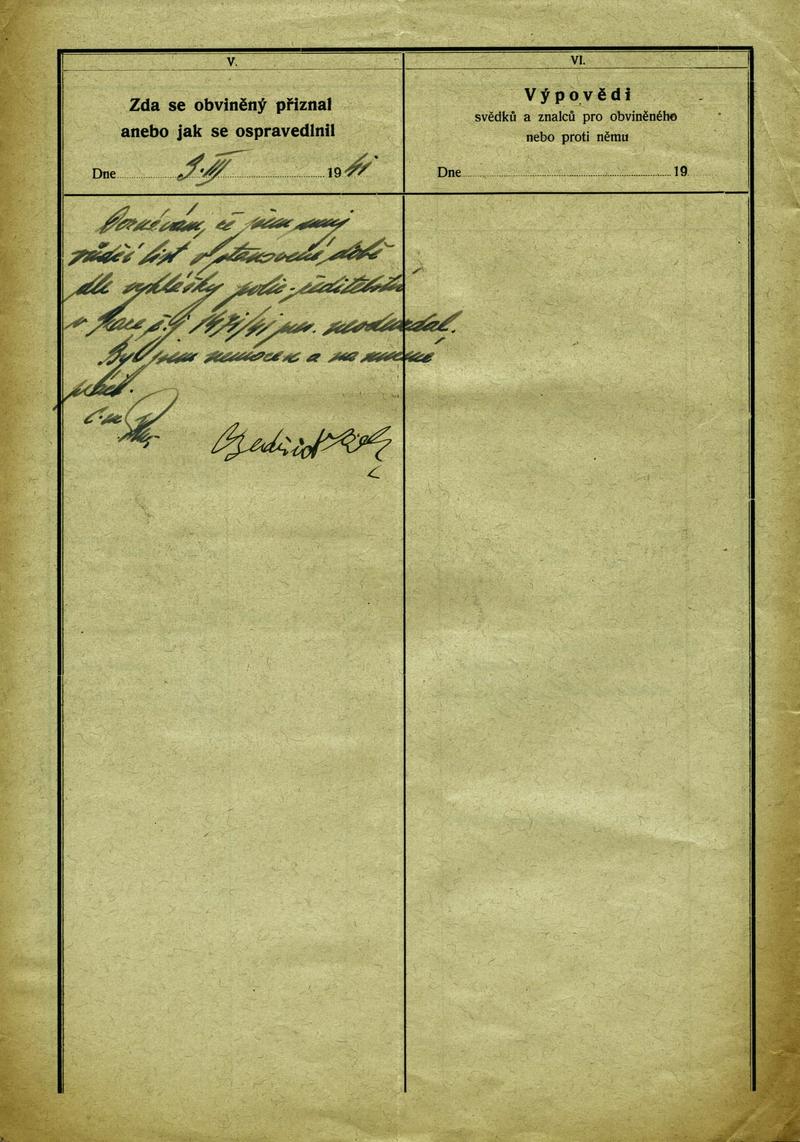 V.
Zda se obviněný přiznal
anebo jak se ospravedlnil
Dne 3. III 19 41
Doznávám, že jsem svůj
řidičí list v stanovené době
dle vyhlášky polic. ředitelství
v Praze jsem neodevzdal.
Byl jsem nemocen a na
Bedřich
VI.
Výpovědi
svědků a znalců pro obviněného
nebo proti němu
Dne 19